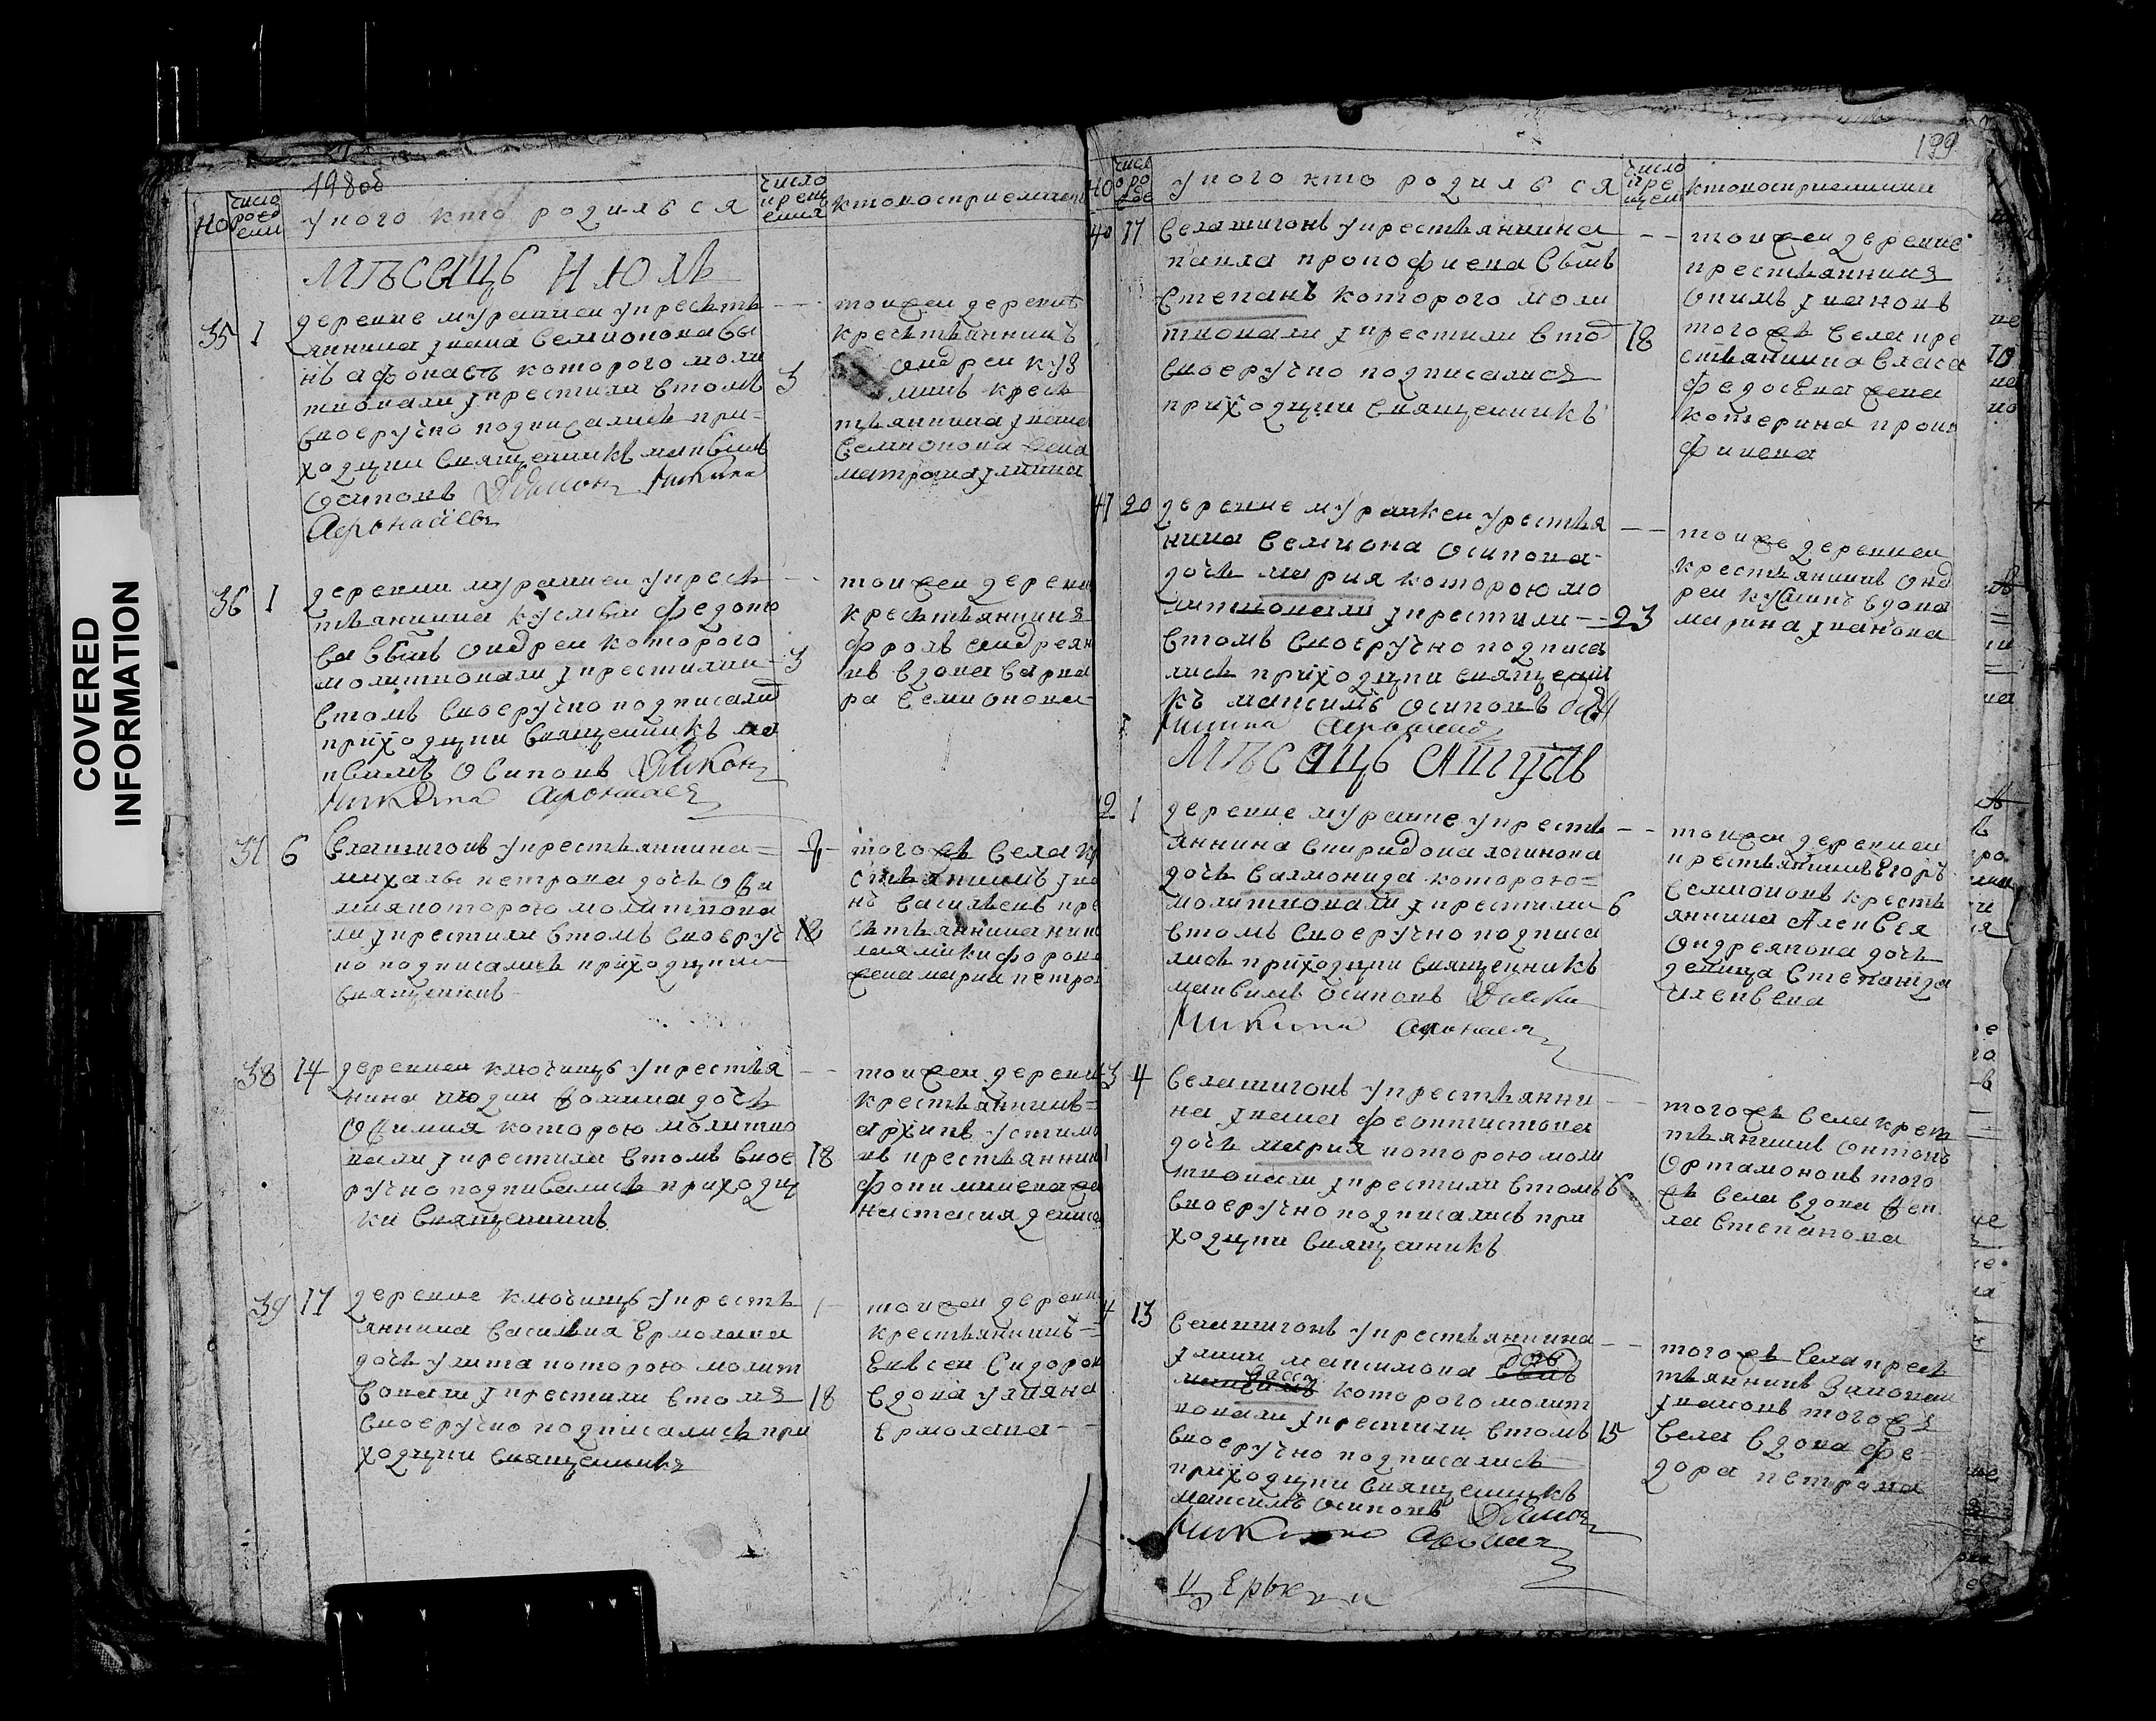 COVERED
INFORMATION
198об
но
число рожд ения
у кого кто родился
число крещ ения
кто восприемник
мѣсецъ июль
35 1
деревне мурашкеи у крестъ
янина ивана семионова сы
нъ афонасъ которого моли
твовали и крестили в томъ 3
своеручно подписались при
ходцки священникъ максимъ
осиповъ дьяконъ никита
афонасьевъ
тоижеи деревнѣ
крестьянинъ
андреи куз
минъ кресть
тьянина ивана
семионова жена
матрона
36 1
деревни мурашкеи у кресть
тьянина кузмы федото
ва сынъ андреи которого
молитвовали и крестили 3
в томъ своеручно подписали
приходцки священникъ ма
ксимъ осиповъ дьяконъ
никита афонасьевъ
тоижеи деревни
крестьянинъ
фролъ андреян
въ вдова варва
ра семионова
37 6
села шигонъ у крестьянина
михаилы петрова дочь офи
мия которою молитвова
ли и крестили в томъ своеруч 18
но подписались приходцки
священникъ
того жъ села кр
стьянинъ ива
нъ васильевъ кре
стьянина
микифорова
жена мария петро
38 14
деревнеи ключищъ у крестья
нина фомина дочь
офимия которою молитво
вали и крестили в томъ свое 18
ручно подписались приходц
ки священникъ
тоижеи деревни
крестьянинъ
архипъ устимо
въ крестьянин
настасия дениса
39 17
деревне ключищъ у кресть
янина василья ермолаева
дочь улита которою молит
вовали и крестили в томъ 18
своеручно подписались при
ходцки священникъ
тоижеи деревни
крестьянинъ
евсеи сидоров
вдова ульяна
ермолаева
199
но
число рожде
у кого кто родился
число кре щен
кто восприемники
40 17
села шигонъ у крестьянина
павла прокофиева сынъ
степанъ которого моли
твовали и крестили в том 18
своеручно подписались
приходцки священникъ
тоижеи деревне
крестьянинъ
ивановъ
того жъ села кре
стьянина власа
федосѣева жена
катерина проко
фиева
41 20
деревне мурашкеи у крестья
нина семиона осипова
дочь мария которою мо
литвовали и крестили 23
в томъ своеручно подписа
лись приходцки священни
къ максимъ осиповъ дья
никита афонасьевъ
тоиже деревнеи
крестьянинъ анд
реи кузминъ вдова
марина иванова
мѣсяцъ август
42 1
деревне мурашке у кресть
янина спиридона логинова
дочь соломонида которою
молитвовали и крестили 6
в томъ своеручно подписа
лись приходцки священникъ
максимъ осиповъ дьяко
никита афонасьев
тоижеи деревнеи
крестьянинъ егоръ
семионовъ кресть
янина алексея
андреянова дочь
девица степанида
алексеева
43 4
села шигонъ у крестьянни
на ивана феоктистова
дочь мария которою моли
твовали и крестили в томъ 6
своеручно подписались при
ходцки священникъ
того жъ села крес
тьянинъ антонъ
артамоновъ того
жъ села вдова фек
ла степанова
44 13
села шигонъ у крестьянина
ильи максимова дочь
которого молит
вовали и крестили в томъ 15
своеручно подписались
приходцки священникъ
максимъ осиповъ дьякон
никита афонасьев
того жъ села крест
тьянинъ
ивановъ того жъ
села вдова фе
дора петрова
церкви